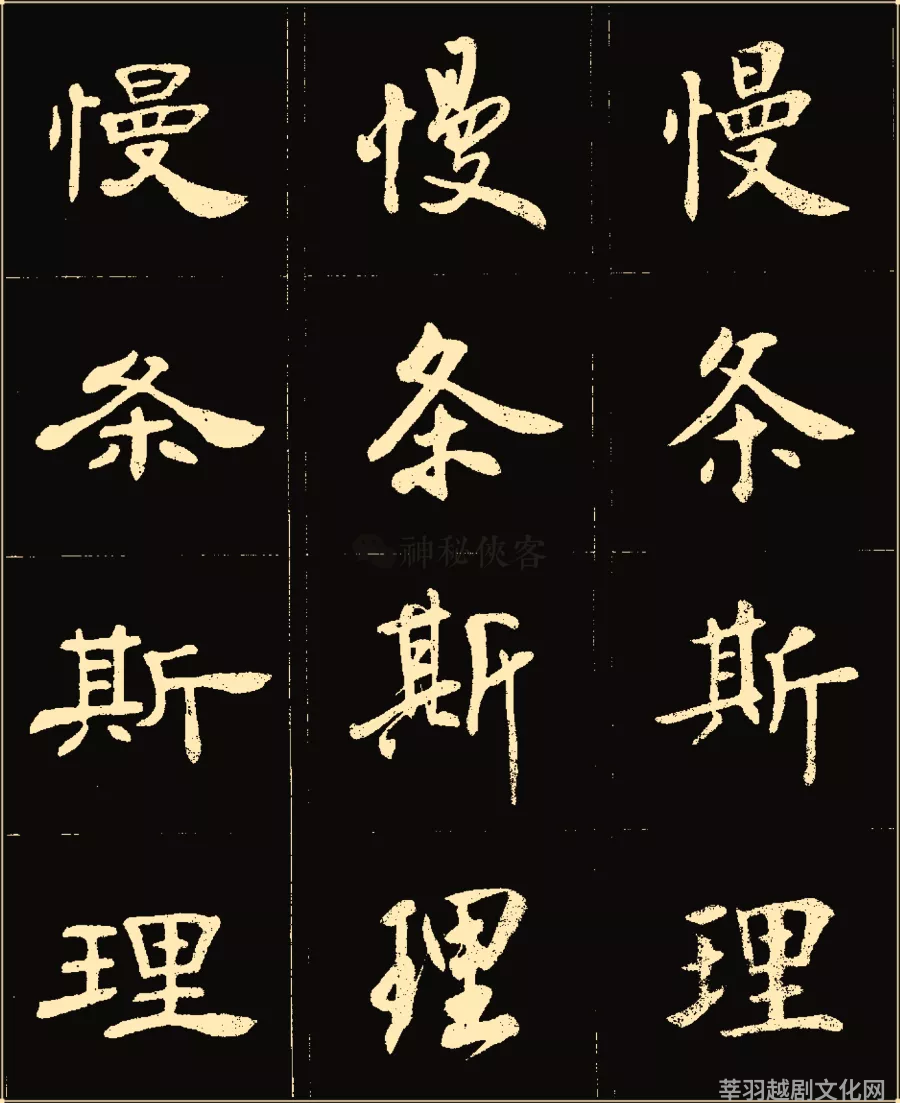 慢慢慢
条条条
斯斯斯
神秘侠客
理理理
莘羽越剧文化网